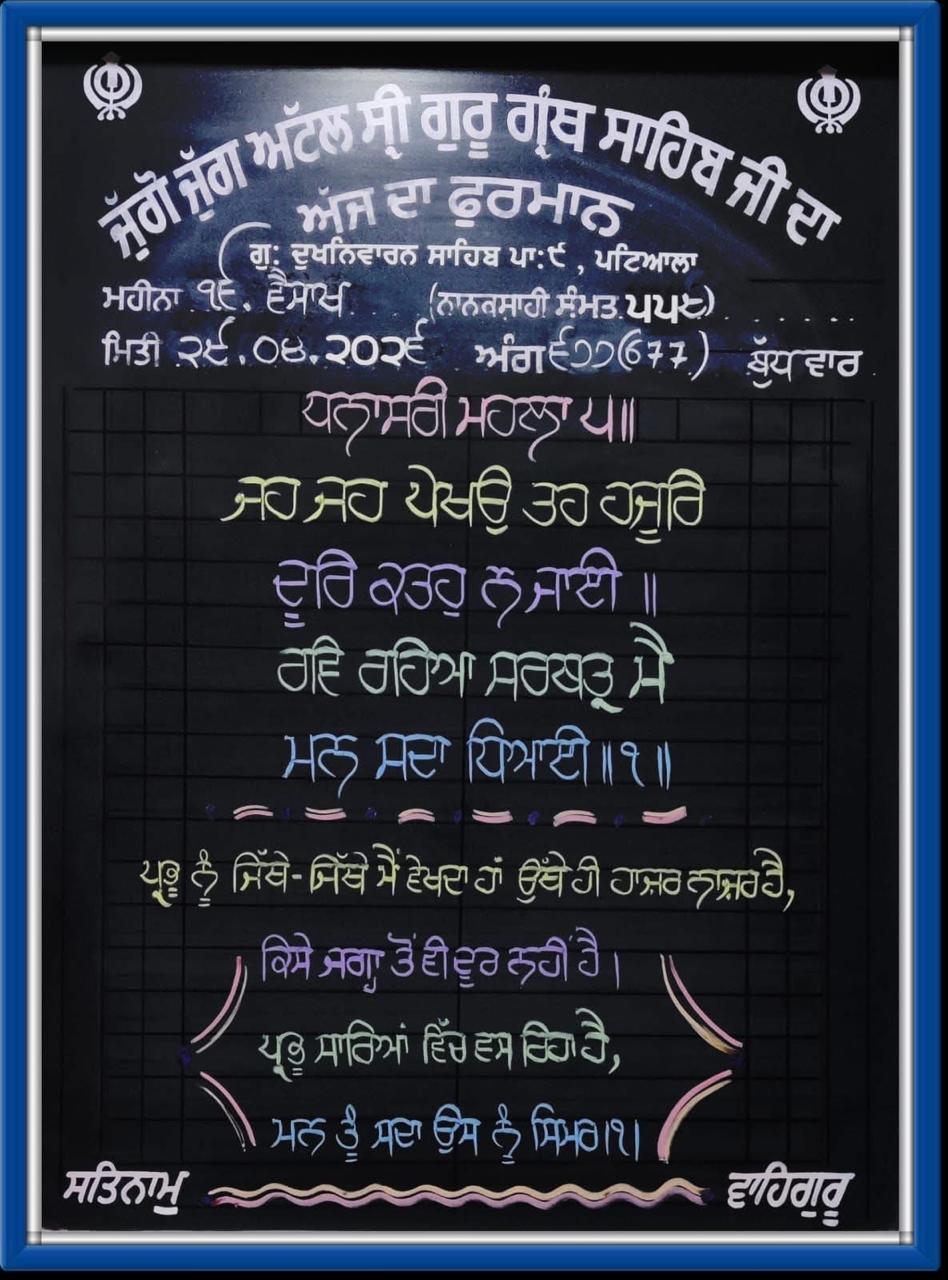 ਜੁੱਗੋ ਜੁੱਗ ਅਟੱਲ ਸ੍ਰੀ ਗੁਰੂ ਗ੍ਰੰਥ ਸਾਹਿਬ ਜੀ ਦਾ
ਅੱਜ ਦਾ ਫੁਰਮਾਨ
ਗੁ: ਦੁਖਨਿਵਾਰਨ ਸਾਹਿਬ ਪਾ:੯ , ਪਟਿਆਲਾ
ਮਹੀਨਾ ੧੬. ਵੈਸਾਖ (ਨਾਨਕਸਾਹੀ ਸੰਮਤ ੫੫੮)
ਮਿਤੀ ੨੯.੦੪.੨੦੨੬ ਅੰਗ ੬੭੭(677) ਬੁੱਧ ਵਾਰ
ਧਨਾਸਰੀ ਮਹਲਾ ੫॥
ਜਹ ਜਹ ਪੇਖਉ ਤਹ ਹਜੂਰਿ
ਦੂਰਿ ਕਤਹੁ ਨ ਜਾਈ ॥
ਰਵਿ ਰਹਿਆ ਸਰਬਤ੍ਰ ਮੈ
ਮਨ ਸਦਾ ਧਿਆਈ॥੧॥
ਪ੍ਰਭੂ ਨੂੰ ਜਿੱਥੇ-ਜਿੱਥੇ ਮੈਂ ਵੇਖਦਾ ਹਾਂ ਉੱਥੇ ਹੀ ਹਾਜ਼ਰ ਨਾਜ਼ਰ ਹੈ,
ਕਿਸੇ ਜਗ੍ਹਾ ਤੋਂ ਵੀ ਦੂਰ ਨਹੀਂ ਹੈ।
ਪ੍ਰਭੂ ਸਾਰਿਆਂ ਵਿੱਚ ਵਸ ਰਿਹਾ ਹੈ,
ਮਨ ਤੂੰ ਸਦਾ ਉਸ ਨੂੰ ਸਿਮਰ।੧।
ਸਤਿਨਾਮੁ ਵਾਹਿਗੁਰੂ